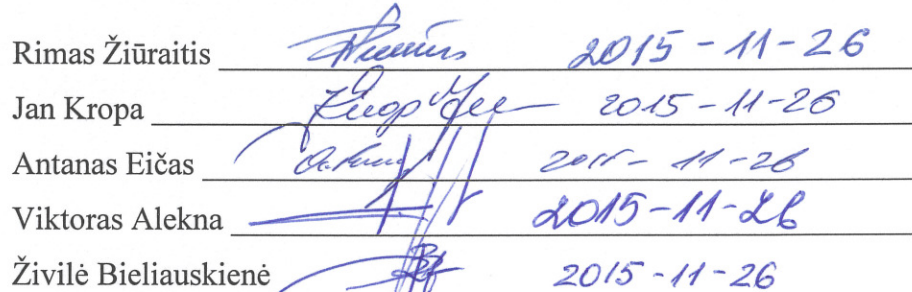 Rimas Žiūraitis 2015-11-26
Jan Kropa 2015-11-26
Antanas Eičas 2015-11-26
Viktoras Alekna 2015-11-26
Živilė Bieliauskienė 2015-11-26